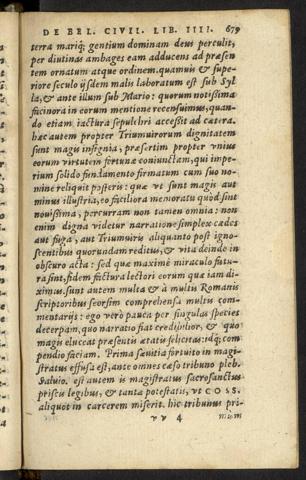 DE BEL. CIVIL. LIB. IIII. 679
terra mariq; gentium dominam deus perculit,
per diutinas ambages eam adducens ad præsen
tem ornatum atque ordinem. quamuis & supe-
riore seculo ijsdem malis laboratum est sub Syl
la, & ante illum sub Mario: quorum notißima
facinora in eorum mentione recensuimus, quan-
do etiam iactura sepulchri acceßit ad cætera.
hæc autem propter Triumuirorum dignitatem
sunt magis insignia, præsertim propter vnius
eorum virtutem fortunæ coniunctam, qui impe-
rium solido fundamento firmatum cum suo no-
mine reliquit posteris: quæ vt sunt magis aut
minus illustria, eo faciliora memoratu quòd sint
nouißima, percurram non tamen omnia: non
enim digna videtur narratione simplex cædes
aut fuga, aut Triumuiris aliquanto post igno-
scentibus quorundam reditus, & vita deinde in
obscuro acta: sed quæ maximè miraculo futu-
ra sint, fidem factura lectori eorum quæ iam di-
ximus. sunt autem multa & à multis Romanis
scriptoribus seorsim comprehensa multis com-
mentarijs: ego verò pauca per singulas species
decerpam, quo narratio fiat credibilior, & quo
magis eluceat præsentis ætatis felicitas: idq; com
pendio faciam. Prima sæuitia fortuito in magi-
stratus effusa est, ante omnes cæso tribuno pleb.
Saluio. est autem is magistratus sacrosanctus
priscis legibus, & tanta potestatis, vt COSS.
aliquot in carcerem miserit. hic tribunus pri-
vv 4 mum